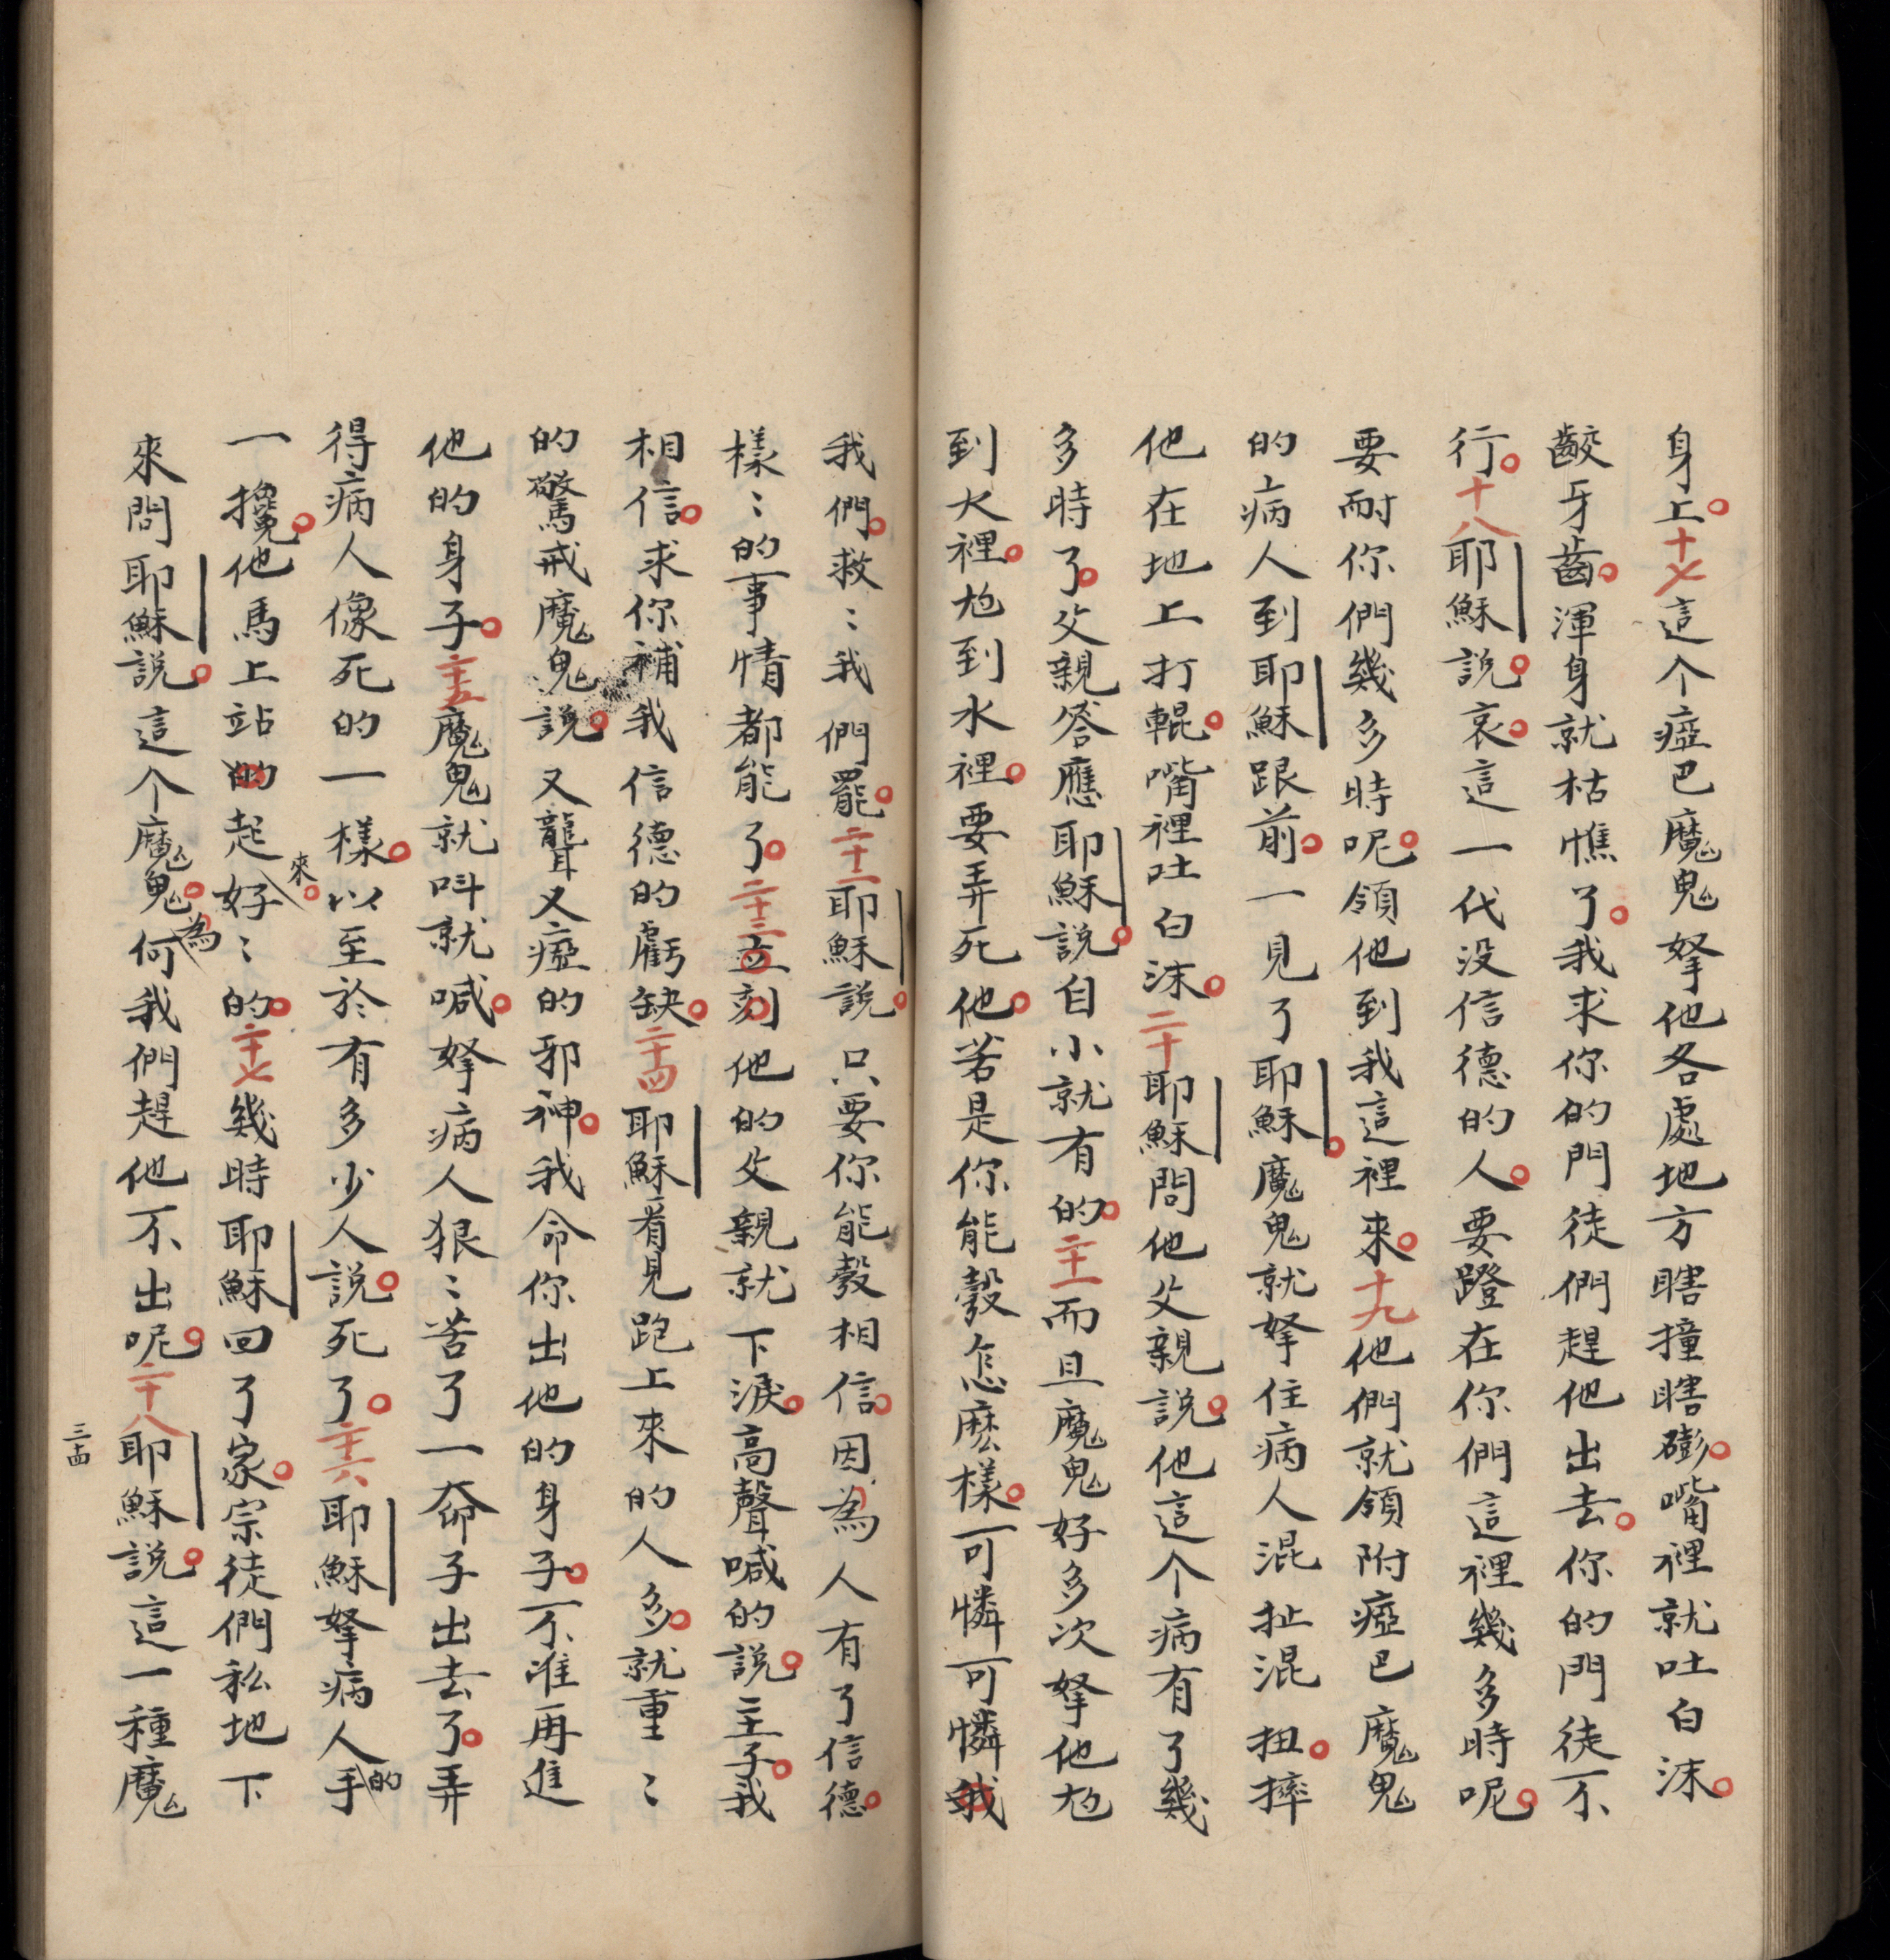 身上。十七這个瘂巴魔鬼拏他各處地方瞎撞瞎磞。嘴裡就吐白沫。
齩牙齒。渾身就枯憔了。我求你的門徒們趕他出去。你的門徒不
行。十八耶穌說。哀。這一代没信德的人。要蹬在你們這裡幾多時呢。
要耐你們幾多時呢。領他到我這裡來。十九他們就領附瘂巴魔鬼
的病人到耶穌跟前。一見了耶穌。魔鬼就拏住病人混扯混扭。摔
他在地上打輥。嘴裡吐白沫。二十耶穌問他父親說。他這个病有了幾
多時了。父親答應耶穌說。自小就有的。二十一而且魔鬼好多次拏他尥
到火裡。尥到水裡。要弄死他。若是你能彀怎麽樣。可憐可憐我
我們。救〻我們罷。二十二耶穌說。只要你能彀相信。因為人有了信德。
樣〻的事情都能了。二十三立刻他的父親就下淚。高聲喊的說。主子。我
相信。求你補我信德的虧缺。二十四耶穌看見跑上來的人多。就重〻
的驚戒魔鬼說。又聾又瘂的邪神。我命你出他的身子。不准再進
他的身子。二十五魔鬼就呌就喊。拏病人狠〻苦了一奅子出去了。弄
得病人像死的一樣。以至於有多少人說。死了。二十六耶穌拏病人的手
一攙。他馬上站的起來。好〻的。二十七幾時耶穌回了家。宗徒們私地下
來問耶穌說。這个魔鬼。為何我們趕他不出呢。二十八耶穌說。這一種魔
三十四